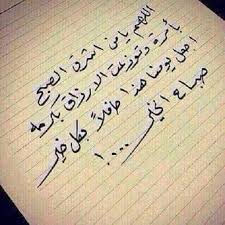 اللهم يا من اشرق الصبح
بأمره وتوزعت الارزاق بكرمه
اجعل يومنا هذا حافلاً بكل خير
صباح الخير....!